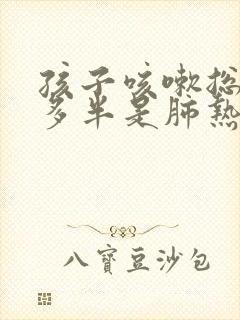 孩子咳嗽总
多半是肺熱
八寶豆沙包